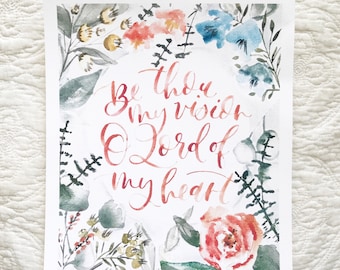 Be thou
my vision
O Lord of
my heart